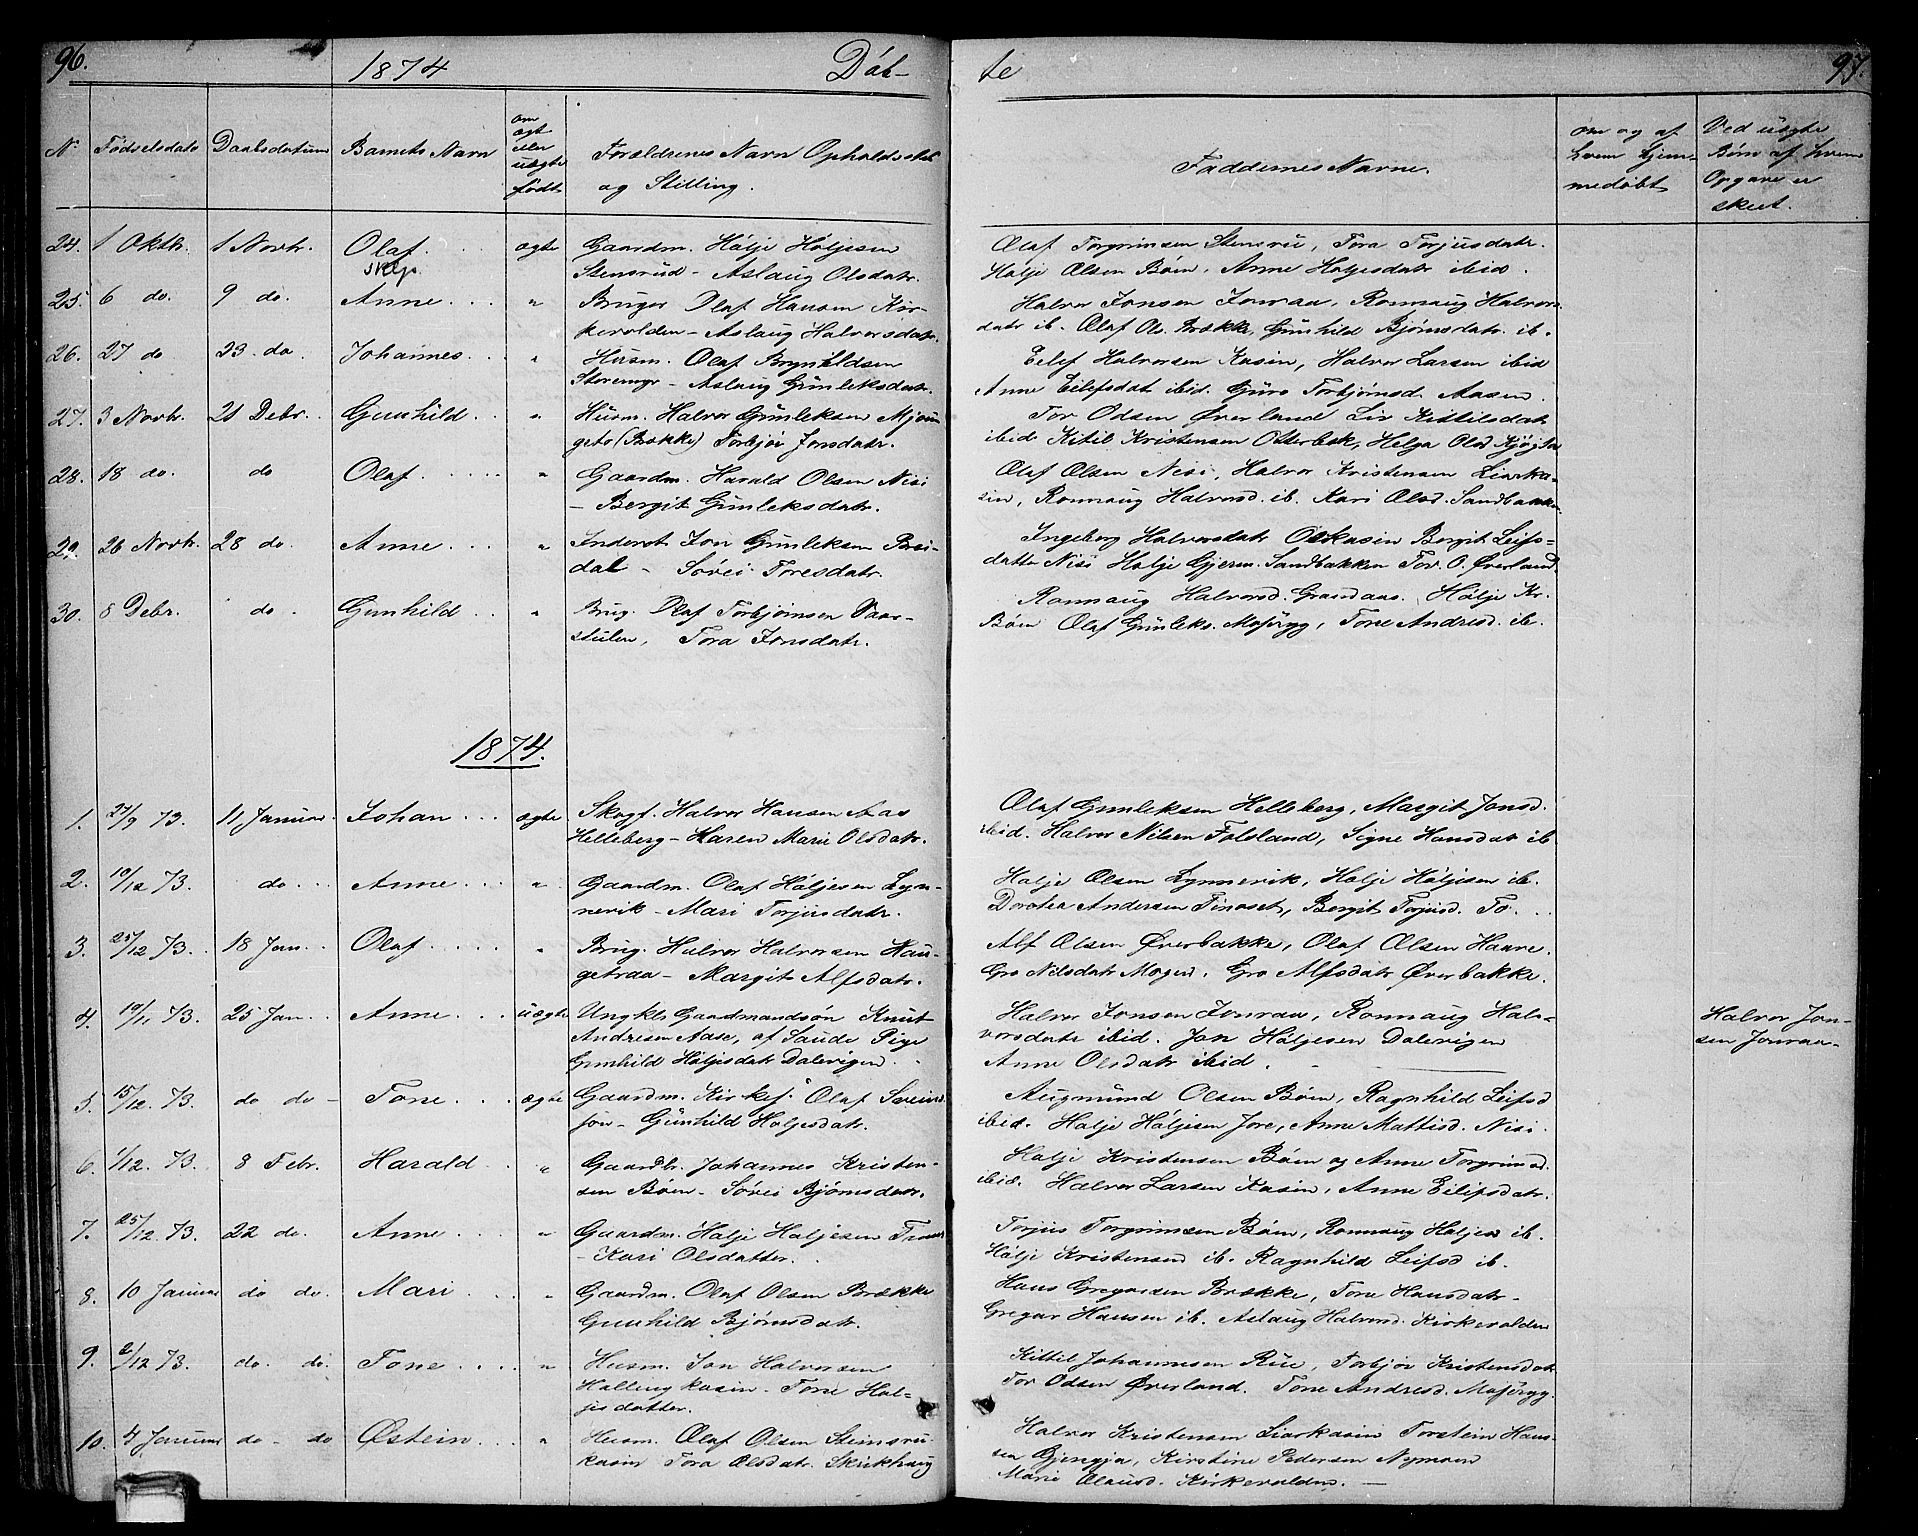 96.
1874
Döb-
te
97.
N.
Fødselsdato
Daabsdatum
Barnets Navn
om ægte eller uægte født
Forældrenes Navn Opholdssted
og Stilling.
Faddernes Navne.
om og af
hvem hjem-
medøbt
Ved uægte
Børn af hvem
Opgave er
skeet.
24. 1 Oktb. 1 Novbr. Olaf ægte Gaardm. Hölje Höljesen
Stensrud - Aslaug Olsdatr.
Olaf Torgrimsen Stensrü, Tora Torjusdatr.
Halje Olsen Böen, Anne Haljesdatr ibid.
25. 6 do. 9 do. Anne " Bruger Olaf Hansen Kir-
kevolden - Aslaug Halvorsdatr.
Halvor Jonsen Jonraa, Ronnaug Halvors-
datr ib. Olaf Ols. Brække, Gunhild Bjørnsdatr. ib.
26. 27 do 23. do Johannes " Husm. Olaf Brynildsen
Storemyr - Aslaug Günleksdatr.
Eilef Halvorsen Kasin, Halvor Larsen ibid
Anne Eilefsdat ibid. Guro Torbjørnsd. Aasen.
27. 3 Novbr. 21 Debr. Gunhild " Husm. Halvor Günleksen Mjoun
geto (Brække) Torbjör Jonsdatr.
Tor Odsen Øverland Liv Kittilsdatr
ibid. Kitil Kristensen Otterbek, Helga Olsd
28. 18 do. do Olaf " Gaardm. Harald Olsen Nisi
- Bergit Günleksdatr.
Olaf Olsen Nisi, Halvor Kristensen Liarka-
sin, Ronnaug Halvorsd. ib. Kari Olsd. Sandbakken
29. 26 Novb. 28 do. Anne " Inderst Jon Günleksen Brei-
dal - Sövei Toresdatr.
Ingeborg Halvorsdatr Oskasin Bergit Leifs-
datter Nisi Halje Gjerm. Sandbakken Tov. O. Øverland.
30. 8 Debr. do. Gunhild " Brug. Olaf Torbjörnsen Vaar-
stulen, Tora Jonsdatr.
Ronnaug Halvorsd. Grasdaas. Hölje Kr.
Böen Olaf Günleks. Mosrygg, Tone Andresd. ib.
1874.
1. 27/9 73. 11 Januar Johan ægte Skogf. Halvor Hansen Aas
Helleberg - Karen Marie Olsdatr.
Olaf Gunleksen Helleberg, Margit Jonsd.
ibid. Halvor Nilsen Folsland, Signe Hansdatr ib
2. 10/12 73. do Anne " Gaardm. Olaf Höljesen Lyn-
nevik - Mari Torjusdatr.
Halje Olsen Lynnevik, Halje Höljesen ib.
Dorthea Andersen Tinoset, Bergit Torjusd. To
3. 25/12 73. 18 Jan. Olaf " Brug. Halvor Halvorsen Hau-
getraa - Margit Alfsdatr.
Alf Olsen Øverbakke, Olaf Olsen Haave.
Gro Nilsdatr Mogen, Gro Alfsdatr Øverbakke.
4. 19/11 73. 25 Jan. Anne uægte Ungkl. Gaardmandsön Knut
Andresen Aase, af Saude Pige
Gunhild Höljesdatr Dalevigen.
Halvor Jonsen Jonraa, Ronnaug Hal-
vorsdatr ibid. Jon Höljesen Dalevigen
Anne Olsdatr ibid.
Halvor Jon-
sen Jonraa-
5. 15/12. 73. do do - Tone ægte Gaardm. Kirkes. Olaf Sveins
jon - Gunhild Holjesdatr.
Augmund Olsen Böen, Ragnhild Leifsd
ibid. Halje Höljesen Jore, Anne Mattisd. Nisi.
6. 1/12. 73. 8 Febr. Harald " Gaardbr. Johannes Kristen-
sen Böen - Sövei Bjørnsdatr.
Halje Kristensen Böen og Anne Torgrimsd.
ibid. Halvor Larsen Kasin, Anne Eilifsdatr.
7. 25/12. 73. 22 do. Anne " Gaardm. Halje Haljesen
- Kari Olsdatter.
Torjus Torgrimsen Böen, Ronnaug Haljesd ib.
Halje Kristensen ib. Ragnhild Leifsd ib.
8. 10 Januar do do. Mari " Gaardm. Olaf Olsen Brække
Gunhild Bjørnsdatr.
Hans Gregarsen Brække, Tone Hansdatr-
Gregar Hansen ib. Aslaug Halvorsd. Kirkevolden
9. 2/12 73. do. do. Tone " Husm. Jon Halvorsen
Hallingkasin. Tone Hal-
jesdatter.
Kittil Johannesen Rue, Torbjör Kristensdatr
Tor Odsen Øverland. Tone Andresd. Mosrygg.
10. 4 Januar do - do Østein " Husm. Olaf Olsen Steinsru-
kasin Tora Olsdatr. Skrikhaug
Halvor Kristensen Liarkasin Torstein Han-
sen Gjengja, Kirstine Pedersen Nymoen
Marie Olausd. Kirkevolden.